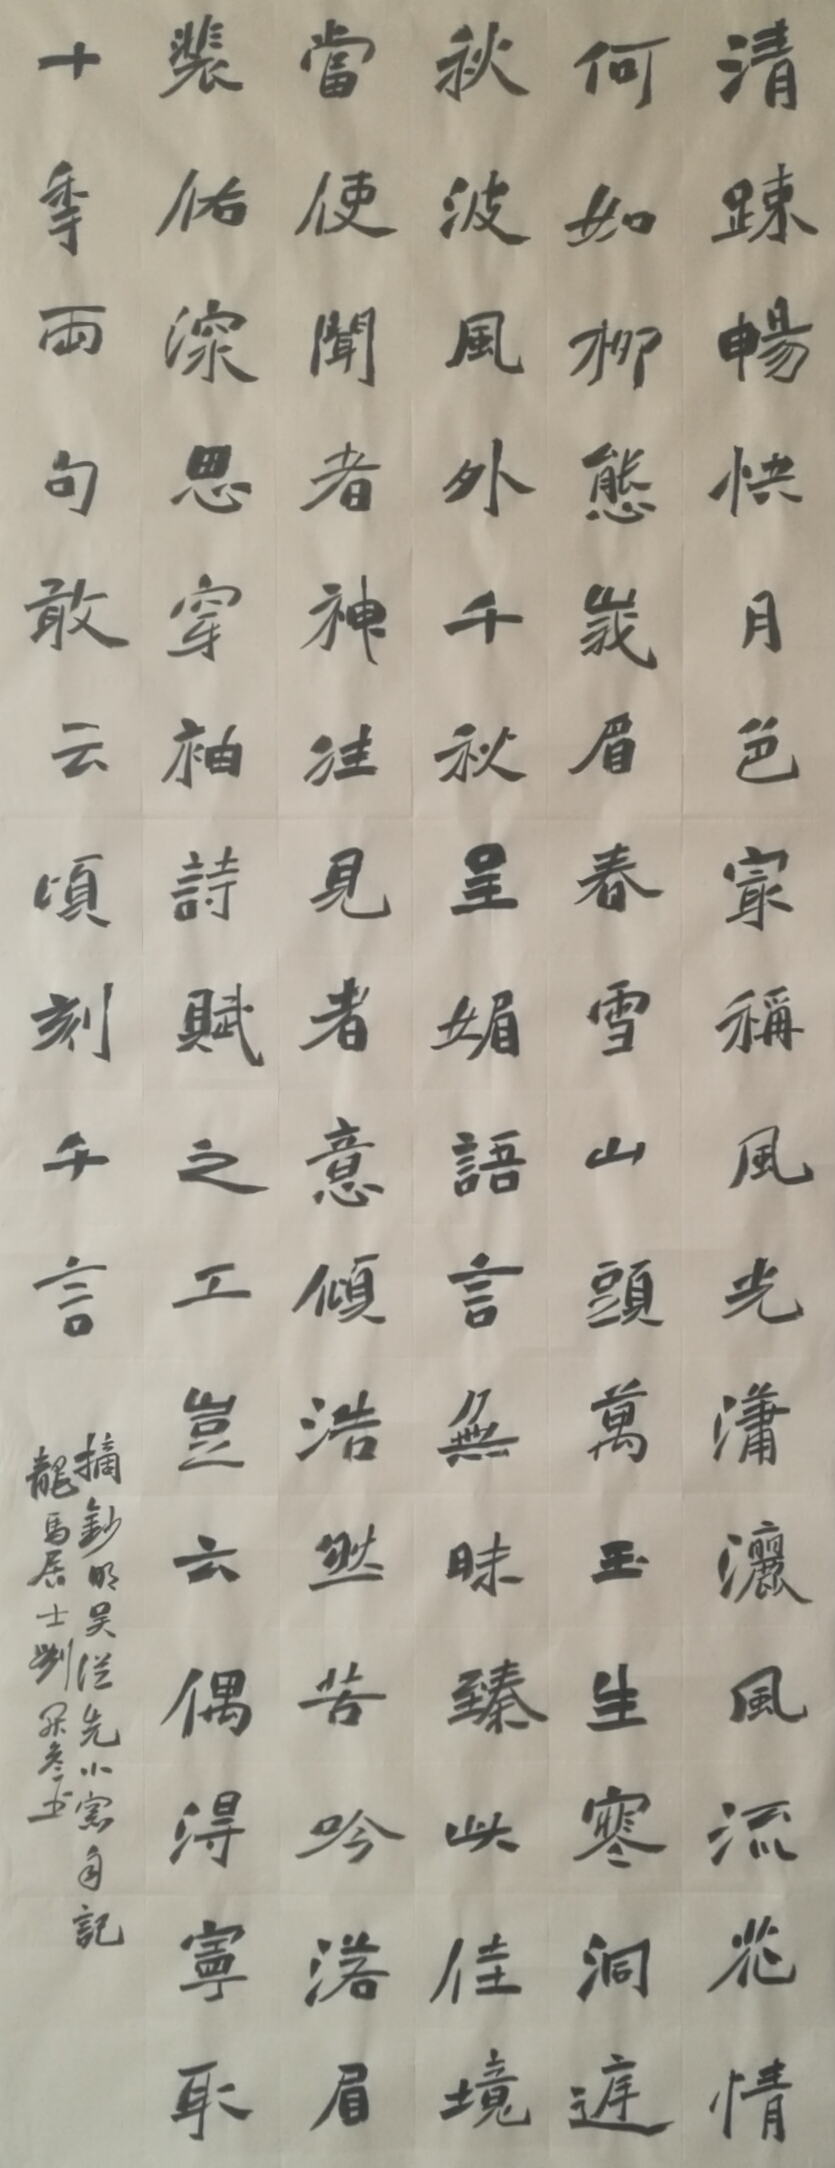 清踈暢快月色㝡稱風光瀟灑風流花情
何如柳態峩眉春雪山頭萬玉生寒洞庭
秋波風外千秋呈媚語言無味臻此佳境
當使聞者神往見者意傾浩然苦吟落眉
裴佑深思穿袖詩賦之工豈云偶得寧取
十秊兩句敢云頃刻千言
摘鈔明吴從先小窗自記
龍馬居士劉书